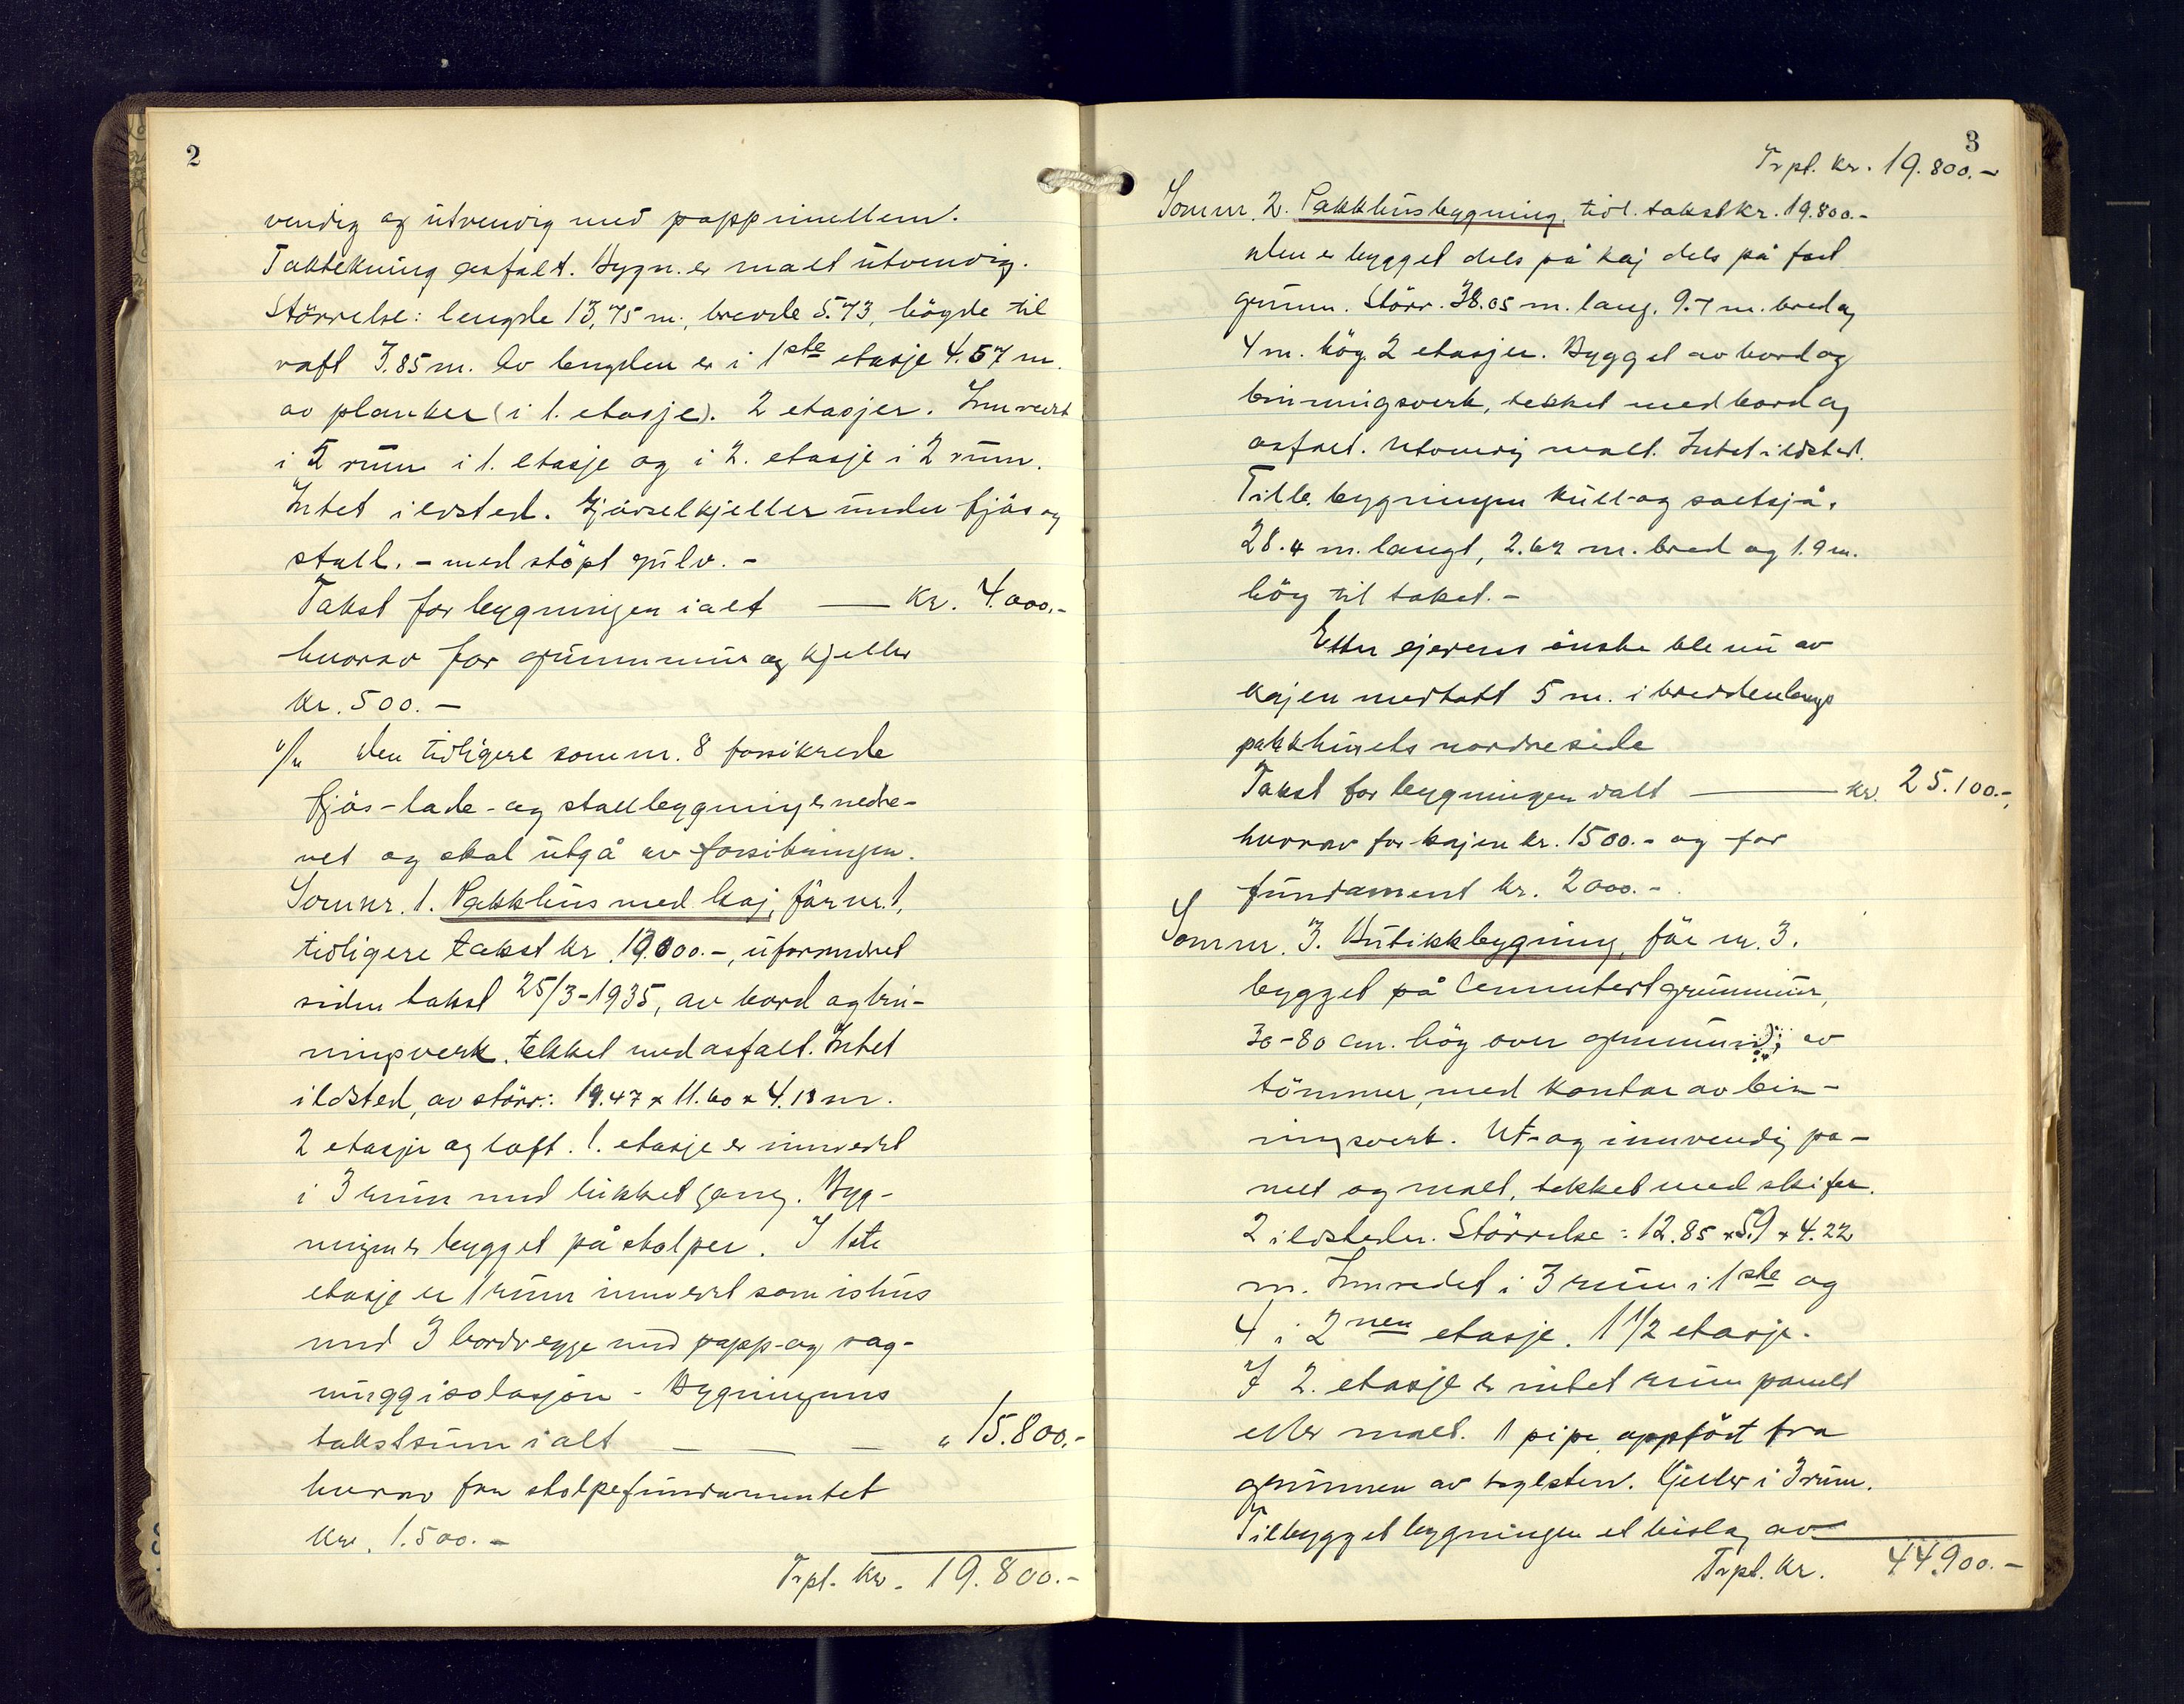 2
vendig og utvendig med papp imellem.
Taktekning asfalt. Bygn. er malt utvendig.
Störrelse: lengde 13,75 m., bredde 5.73, högde til
raft 3.85 m. Av lengden er i 1ste etasje 4.57 m.
av planker (i 1. etasje). 2 etasjer. Innredet
i 5 rum i 1. etasje og i 2. etasje i 2 rum.
Intet ildsted. Gjödselkjeller under fjös og
stall. - med stöpt gulv. -
Takst for bygningen ialt — Kr. 4.000.-
hvorav for grunnmur og kjeller
kr. 500. -
Den tidligere som nr. 8 forsikrede
fjös-lade-og stallbygning er nedre-
vet og skal utgå av forsikringen.
Som nr. 1. Pakkhus med kaj, för nr. 1,
tidligere takst kr. 19.000.-, uforandret
siden takst 25/3-1935, av bord og bin-
ningsverk. tekket med asfalt. Intet
ildsted, av störr.: 19.47 x 11.60 x 4.13 m.
2 etasje og loft. 1. etasje er innredet
i 3 rum med lukket gang. Byg-
ningen er bygget på stolper. I 1ste
etasje er 1 rum innredet som ishus
med 3 bordvegge med papp-og sag-
muggisolasjon - Bygningens
takstsum ialt — — — " 15.800.-
hvorav for stolpefundamentet
Kr. 1.500. -
Trpt. Kr. 19.800.-
3
Trpt. kr. 19.800. -
Som nr. 2. Pakkhusbygning, tidl. takst kr. 19.800.-
den er bygget dels på kaj dels på fast
grunn. Störr. 38.05 m. lang. 9.7 m. bred og
4 m. hög. 2 etasjer. Bygget av bord og
binningsverk, tekket med bord og
asfalt. Utvendig malt. Intet ildsted.
Til bygningen kull-og saltsjå.
28.4 m. langt, 2.62 m. bred og 1.9 m.
hög til taket. -
Etter ejerens önske ble nu av
kajen medtatt 5 m. i bredden langs
pakkhusets nordre side
Takst for bygningen ialt — kr. 25.100.-,
hvorav for kajen kr. 1500.- og for
fundament kr. 2000.-
Som nr. 3. Butikkbygning, för nr. 3.
bygget på cementert grunnmur,
30-80 cm. hög over grunnen; av
tömmer, med kontor av bin-
ningsverk. Ut- og innvendig pa-
nelt og malt, tekket med skifer.
2 ildsteder. Störrelse: 12.85 x 5.9 x 4.22
m. Innredet i 3 rum i 1ste og
4 i 2nen etasje. 1 1/2 etasje.
I 2. etasje er intet rum panelt
eller malt. 1 pipe oppfört fra
grunnen av teglsten. Kjeller i 3 rum.
Tilbygget bygningen et bislag av
Trpt. kr. 44.900.-